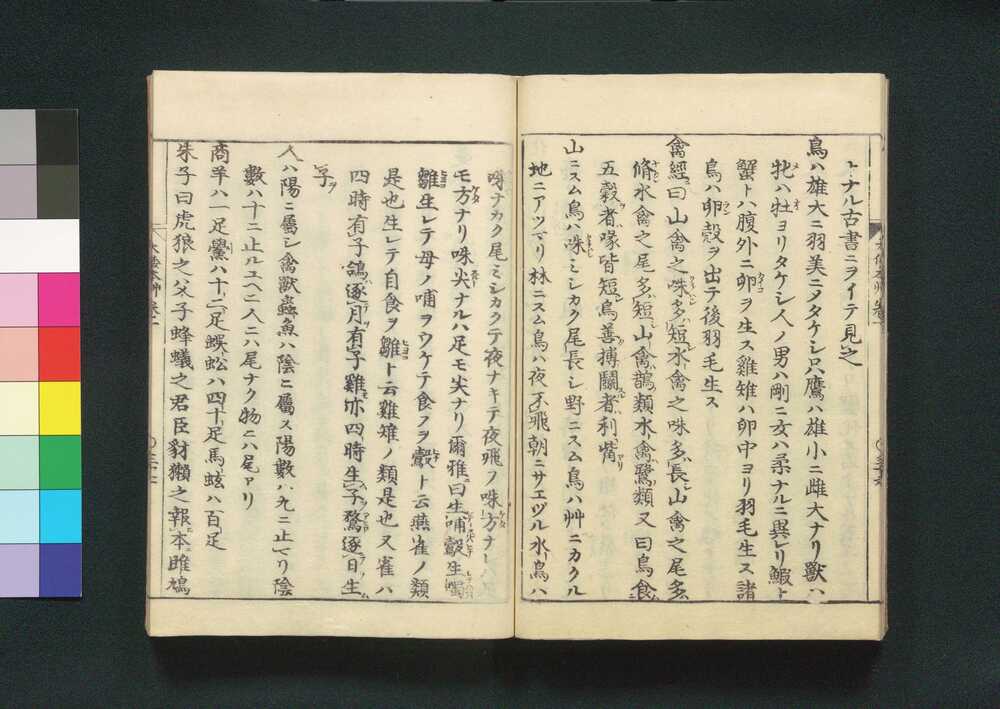 トナル古書ニヲイテ見之
鳥ハ雄大ニ羽美ニタケシ只鷹ハ雄小ニ雌大ナリ獸ハ
牝ハ牡ヨリタケシ人ノ男ハ剛ニ女ハ柔ナルニ異レリ鰕ト
蟹トハ腹外ニ卵ヲ生ス雞雉ハ卵中ヨリ羽毛生ス諸
鳥ハ卵殻ヲ出テ後羽毛生ス
禽經曰山禽之咮多短水禽之咮多長山禽之尾多
脩水禽之尾多短山禽鵲類水禽鷺類又曰鳥食
五穀者喙皆短鳥善搏鬪者利觜
山ニスム鳥ハ咮ミシカク尾長シ野ニスム鳥ハ艸ニカクル
地ニアツマリ林ニスム鳥ハ夜不飛朝ニサエヅル水鳥ハ
咮ナカク尾ミシカクテ夜ナキテ夜飛フ咮方ナレハ足
モ方ナリ咮尖ナルハ足モ尖ナリ爾雅曰生哺鷇生噣
雛生レテ母ノ哺ヲウケテ食フヲ鷇ト云燕雀ノ類
是也生レテ自食ヲ雛ト云雞雉ノ類是也又雀ハ
四時有子鴿逐月有子雞亦四時生子鶩逐日生
子
人ハ陽ニ屬シ禽獸蟲魚ハ陰ニ屬ス陽數ハ九ニ止マリ陰
數ハ十ニ止ルユヘニ人ニハ尾ナク物ニハ尾アリ
商羊ハ一足鱟ハ十二足蜈蚣ハ四十足馬蚿ハ百足
朱子曰虎狼之父子蜂蟻之君臣豺獺之報本雎鳩
大倭本艸卷一